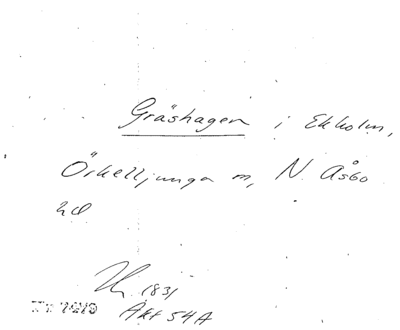 Gräshagen i Ekholm,
Örkelljunga m, N. Åsbo
hd
1831
Akt 54A